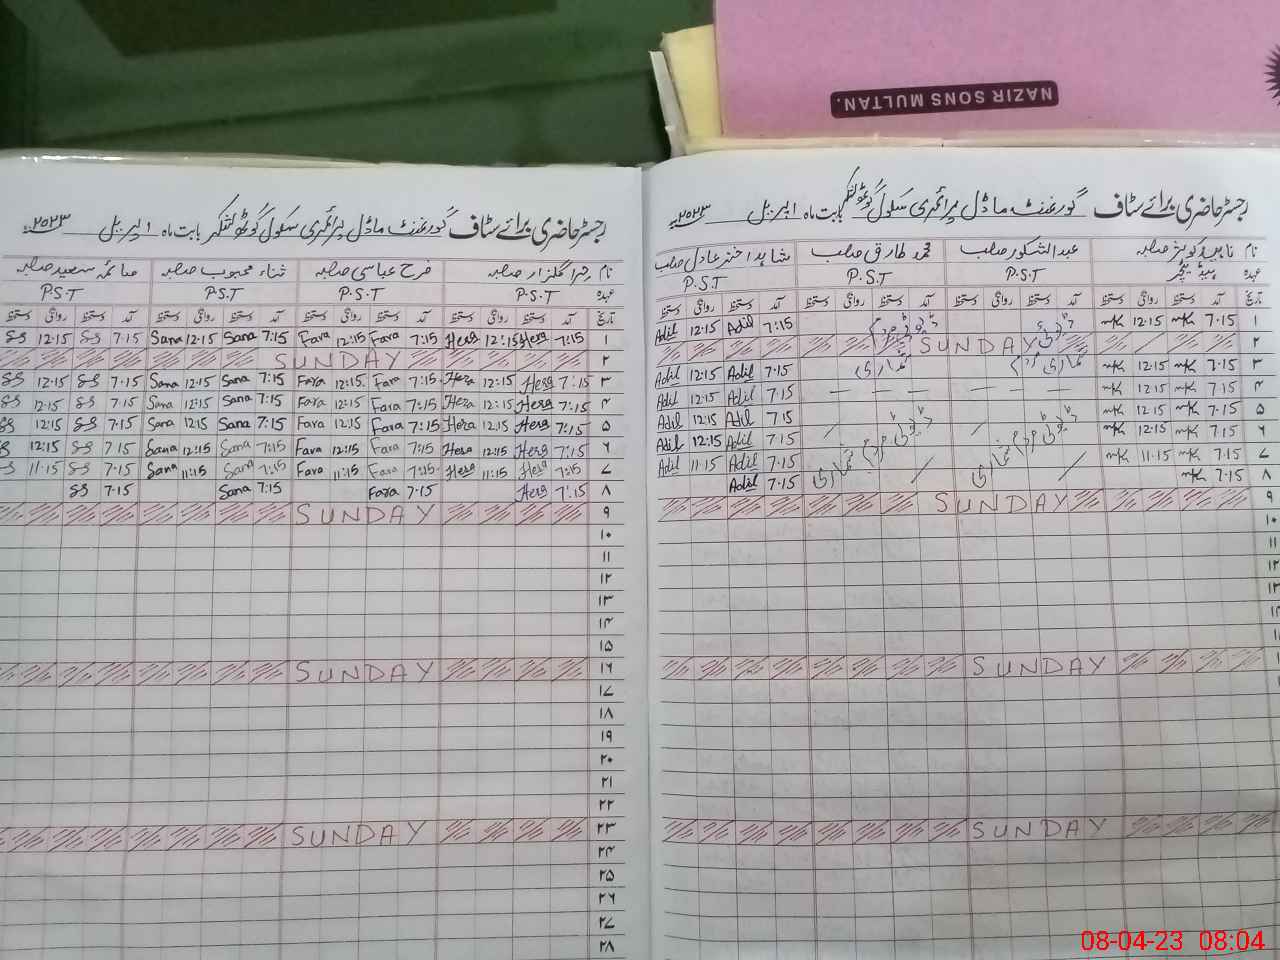 NAZIR SONS MULTAN.
رجسٹر حاضری برائے سٹاف گورنمنٹ ماڈل پرائمری سکول گوٹھ لشکر بابت ماہ اپریل ۲۰۲۳ء
نام عبدالشکور صاحب محمد طارق صاحب شاہد اختر عادل صاحب
عہدہ ہیڈ ٹیچر P.S.T P.S.T P.S.T
تاریخ آمد دستخط روانگی دستخط آمد دستخط روانگی دستخط آمد دستخط روانگی دستخط آمد دستخط روانگی دستخط
۱ 7.15 mk 12.15 mk 7:15 Adil 12:15 Adil
۲ SUNDAY
۳ 7.15 mk 12.15 mk 7.15 Adil 12:15 Adil
۴ 7.15 mk 12.15 mk 7.15 Adil 12.15 Adil
۵ 7.15 mk 12.15 mk 7.15 Adil 12.15 Adil
۶ 7.15 mk 12.15 mk 7.15 Adil 12:15 Adil
۷ 7.15 mk 11.15 mk 7.15 Adil 11.15 Adil
۸ 7.15 mk 7.15 Adil
۹ SUNDAY
۱۰
۱۱
۱۲
۱۳
۱۴
۱۵
SUNDAY
SUNDAY
رجسٹر حاضری برائے سٹاف گورنمنٹ ماڈل پرائمری سکول گوٹھ لشکر بابت ماہ اپریل ۲۰۲۳ء
نام حرا گلزار صاحبہ فرح عباسی صاحبہ ثناء محبوب صاحبہ صائمہ سعید صاحبہ
عہدہ P.S.T P.S.T P.S.T P.S.T
تاریخ آمد دستخط روانگی دستخط آمد دستخط روانگی دستخط آمد دستخط روانگی دستخط آمد دستخط روانگی دستخط
۱ 7:15 Hera 12:15 Hera 7:15 Fara 12:15 Fara 7:15 Sana 12:15 Sana 7.15 SS 12.15 SS
۲ SUNDAY
۳ 7:15 Hera 12:15 Hera 7:15 Fara 12:15 Fara 7:15 Sana 12:15 Sana 7.15 SS 12.15 SS
۴ 7:15 Hera 12:15 Hera 7:15 Fara 12:15 Fara 7:15 Sana 12:15 Sana 7.15 SS 12.15 SS
۵ 7:15 Hera 12:15 Hera 7:15 Fara 12:15 Fara 7:15 Sana 12:15 Sana 7.15 SS 12.15 SS
۶ 7:15 Hera 12:15 Hera 7:15 Fara 12:15 Fara 7:15 Sana 12:15 Sana 7.15 SS 12:15 SS
۷ 7:15 Hera 11:15 Hera 7:15 Fara 11:15 Fara 7:15 Sana 11:15 Sana 7.15 SS 11.15 SS
۸ 7:15 Hera 7.15 Fara 7:15 Sana 7.15 SS
۹ SUNDAY
۱۰
۱۱
۱۲
۱۳
۱۴
۱۵
۱۶ SUNDAY
۱۷
۱۸
۱۹
۲۰
۲۱
۲۲
۲۳ SUNDAY
۲۴
۲۵
۲۶
۲۷
۲۸
08-04-23 08:04